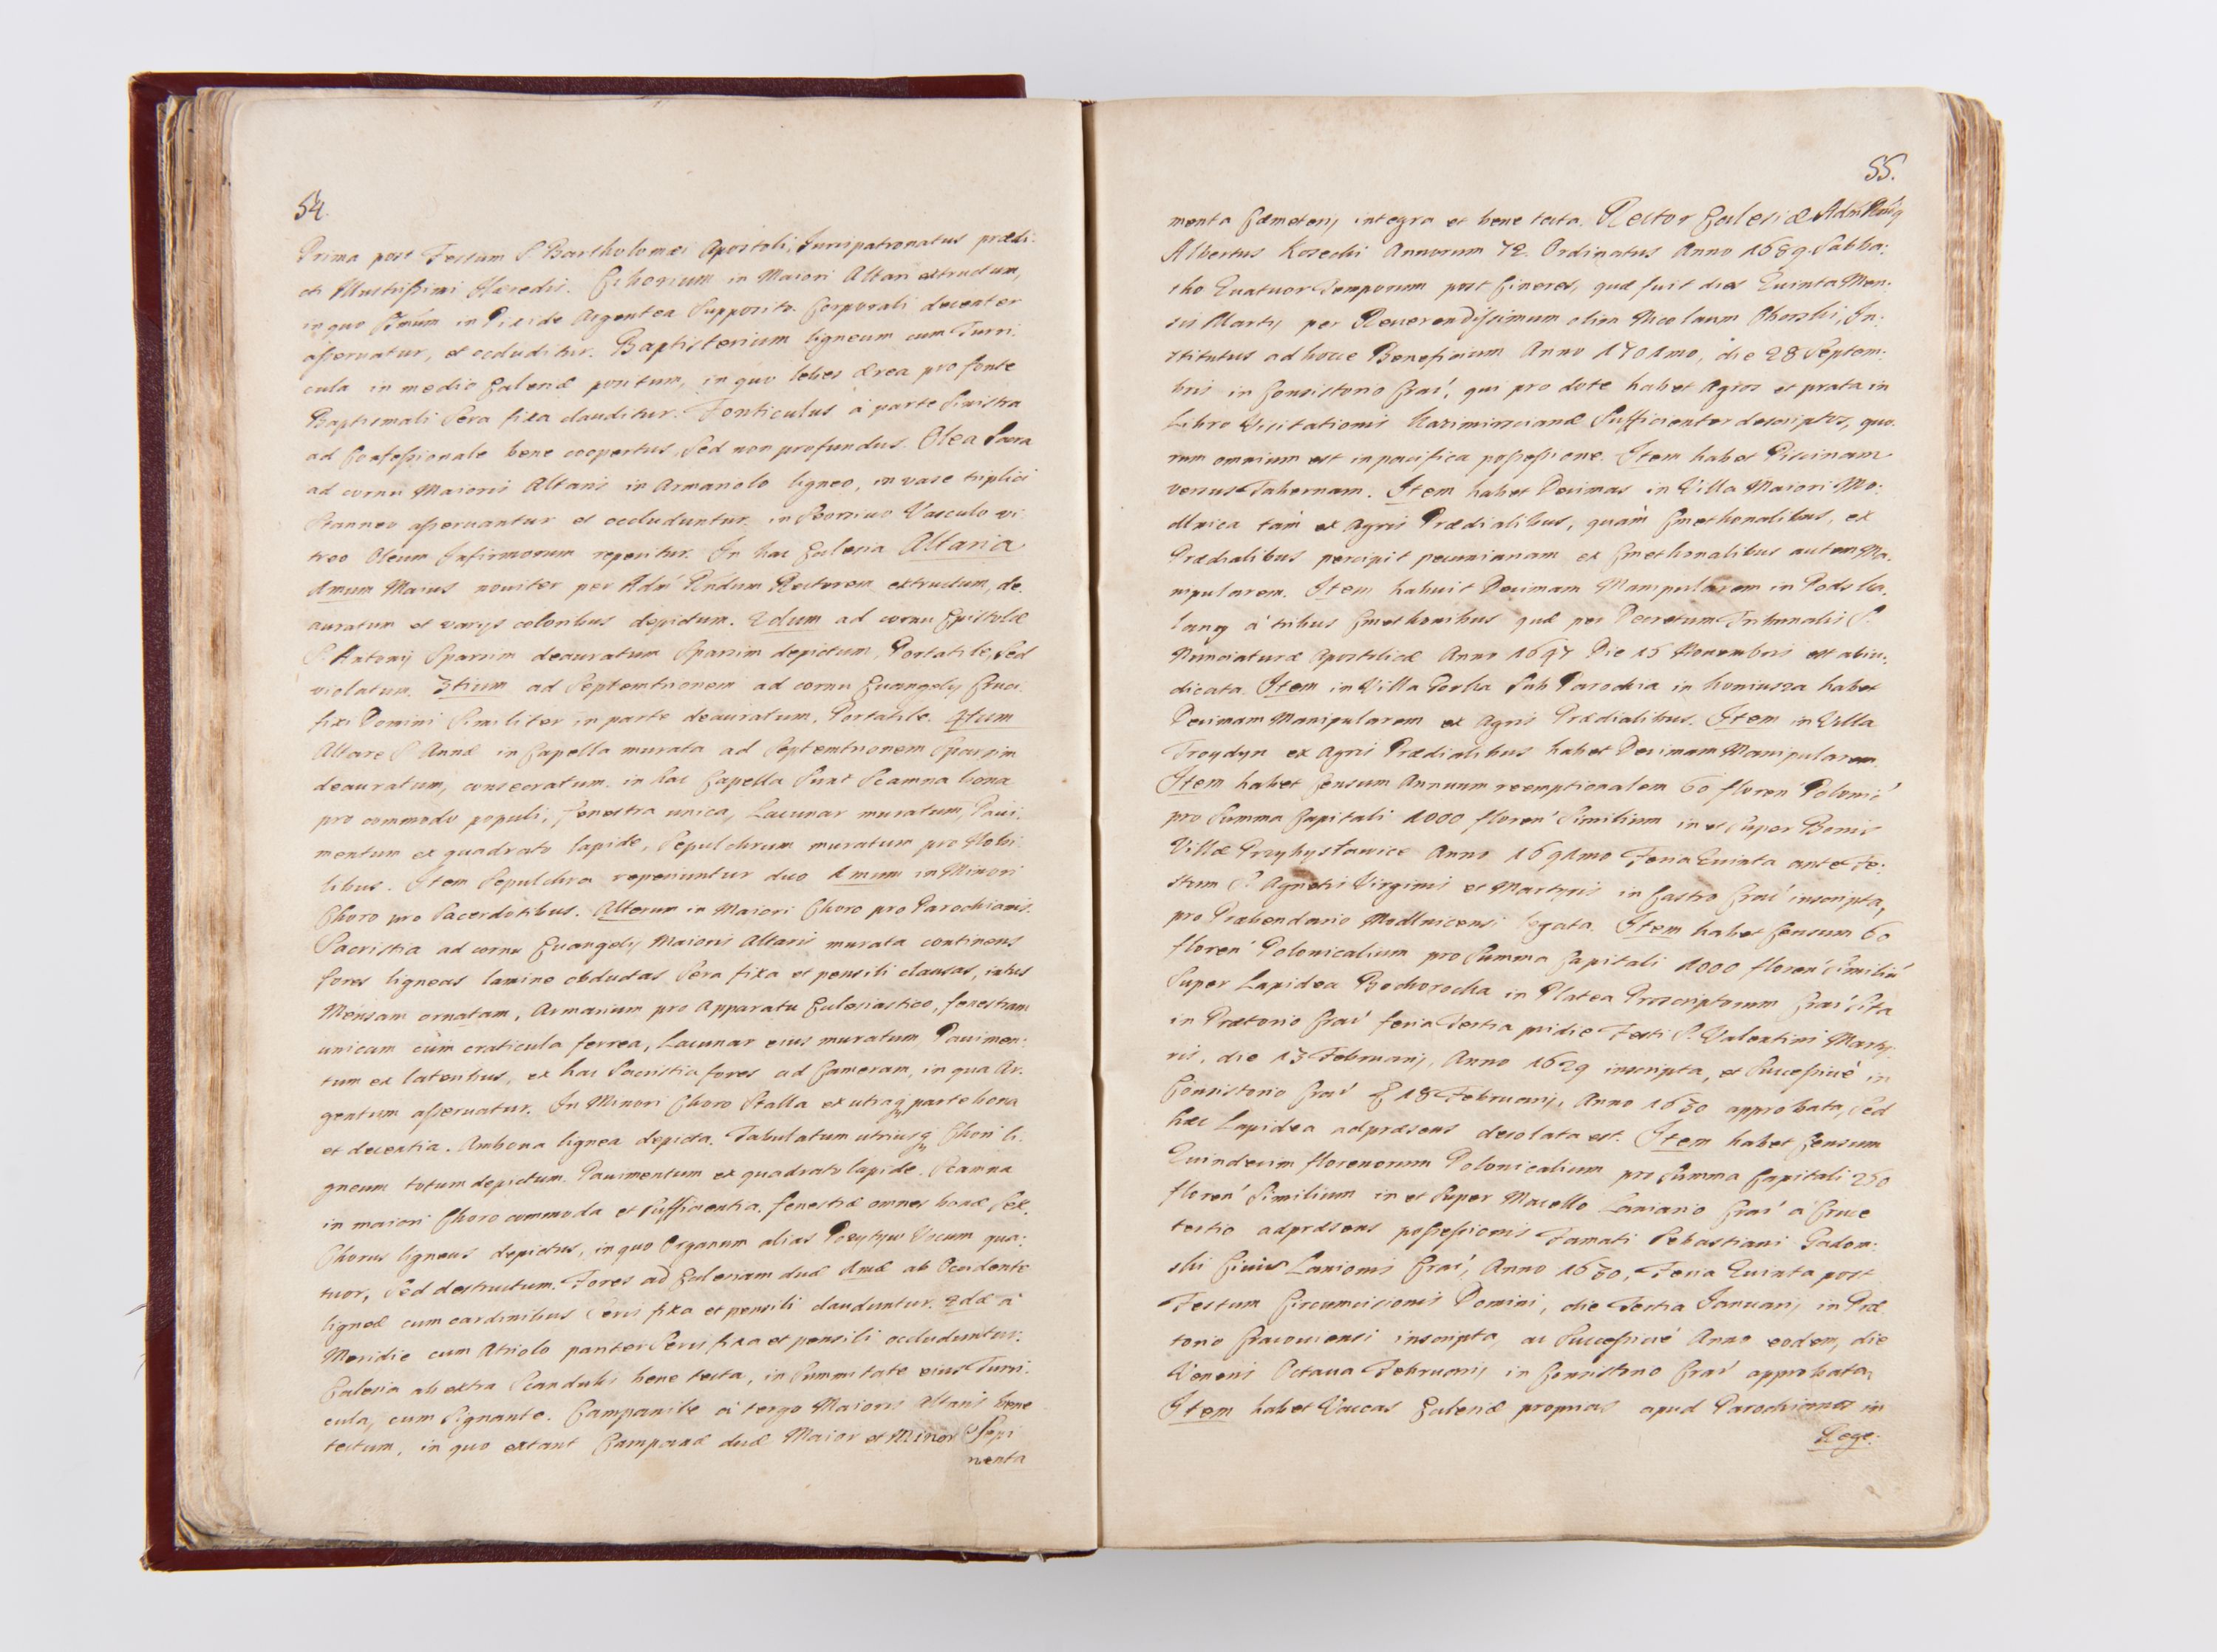 54.
Prima post Festum S. Bartholomæi Apostoli, Jurispatronatus prædi:
cti Illustrissimi Hæredis. Ciborium in Maiori Altari extructum,
in quo SSmum in Pixide Argentea Supposito Corporali decenter
asservatur, et occluditur. Baptisterium ligneum cum Turri:
cula in medio Ecclesiæ positum, in quo lebes ærea pro fonte
Baptismali Sera fixa clauditur. Fonticulus à parte Sinistra
ad Confessionale bene coopertus, Sed non profundus. Olea Sacra
ad cornu Maioris Altaris in Armariolo ligneo, in vase triplici
Stanneo asservantur et occluduntur. in Seorsivo Vasculo vi
treo Oleum Infirmorum reperitur. In hac Ecclesia Altaria
1mum Maius noviter per Adm Rndum Rectorem extructum, de:
auratum et varys coloribus depictum. 2dum ad cornu Epistolæ
S. Antonij Sparsim deauratum Sparsim depictum, Portatile, Sed
violatum. 3tium ad Septemtrionem ad cornu Evangelij Cruci
fixi Domini Similiter in parte deauratum, Portatile. 4tum
Altare S. Annæ in Capella murata ad Septemtrionem Sparsim
deauratum, consecratum. in hac Capella Sunt Scamna bona
pro commodo populi, fenestra unica, Lacunar muratum, Pavi:
mentum ex quadrato lapide, Sepulchrum muratum pro Nobi
libus. Item Sepulchra reperiuntur duo 1mum in Minori
Choro pro Sacerdotibus. Alterum in Maiori Choro pro Parochianis.
Sacristia ad cornu Evangelij Maioris Altaris murata continens
fores ligneas lamine obductas Sera fixa et pensili clausas, intus
Mensam ornatam, Armarium pro Apparatu Ecclesiastico, fenestram
unicam cùm craticula ferrea, Lacunar eius muratum Pavimen:
tum ex lateribus, ex hac Sacristia fores ad Cameram, in qua Ar:
gentum asservatur. In Minori Choro Stalla ex utraq parte bona
et decentia. Ambona lignea depicta. Tabulatum utriusq Chori li:
gneum totum depictum. Pavimentum ex quadrato lapide. Scamna
in maiori Choro commoda et Sufficientia. fenestræ omnes bonæ Sex.
Chorus ligneus depictus, in quo Organum alias Pozytyw Vocum qua:
tuor, Sed destructum. Fores ad Ecclesiam duæ 1mæ ab Occidente
ligneæ cum cardinibus Seris fixa et pensili clauduntur. 2dæ à
Meridie cum Atriolo pariter Seris fixa et pensili occluduntur.
Ecclesia ab extra Scandulis bene tecta, in Summitate eius Turri:
cula, cum Signante. Campanile à tergo Maioris Altaris bene
tectum, in quo extant Campanæ duæ Maior et Minor Sepi
menta
55.
menta Cæmeterij integra et bene tecta. Rector Ecclesiæ Adm
Albertus Kosecki Annorum 72. Ordinatus Anno 1689. Sabba:
tho Quatuor Temporum post Cineres, quæ fuit dies Quinta Men:
sis Martij per Reverendissimum olim Nicolaum Oborski, In:
stitutus ad hocce Beneficium Anno 1701mo, die 28 Septem:
bris in Consistorio Crac', qui pro dote habet Agros et prata in
Libro Visitationis Kazimirscianæ Sufficienter descriptos, quo:
rum omnium est in pacifica possessione. Item habet Piscinam
versus Tabernam. Item habet Decimas in Villa Maiori Mo:
dlnica tàm ex Agris Prædialibus, quàm Cmethonalibus, ex
Prædialibus percipit pecuniariam ex Cmethonalibus autem Ma:
nipularem. Item habuit Decimam Manipularem in Podska:
lany à tribus Cmethonibus quæ per Decretum Tribunalis S.
Nunciaturæ Apostolicæ Anno 1697 Die 15 Novembris est abiu:
dicata. Item in Villa Gorka Sub Parochia in koniusza habet
Decimam Manipularem ex Agris Prædialibus. Item in Villa
Troydyn ex Agris Prædialibus habet Decimam Manipularem.
Item habet Censum Annuum reemptionalem 60 floren' Polonic'
pro Summa Capitali 1000 floren' Similium in et Super Bonis
Villæ Przybysławice Anno 1691mo Feria Quinta ante Fe:
stum S. Agnetis Virginis et Martyris in Castro Crac' inscripta,
pro Præbendario Modlnicensi legata. Item habet Censum 60
floren' Polonicalium pro Summa Capitali 1000 floren' Similiu'
Super Lapidea Bochorocka in Platea Proscriptorum Crac' Sita
in Prætorio Crac' feria Tertia pridie Festi S. Valentini Marty
ris, die 13 Februarij, Anno 1629 inscripta, et Successivè in
Consistorio Crac' 18 Februarij, Anno 1630 approbata, Sed
hæc Lapidea adpræsens desolata est. Item habet Censum
Quindecim florenorum Polonicalium pro Summa Capitali 250
floren' Similium in et Super Macello Laniario Crac' à Cruce
tertio adpræsens possessionis Famati Sebastiani Gadom:
ski Civis Lanionis Crac', Anno 1630, Feria Quinta post
Festum Circumcisionis Domini, die Tertia Januarij in Præ
torio Cracoviensi inscripta, ac Successivè Anno eodem, die
Veneris Octava Februarij in Consistorio Crac' approbata,
Item habet Vaccas Ecclesiæ proprias apud Parochianos in
Rege: